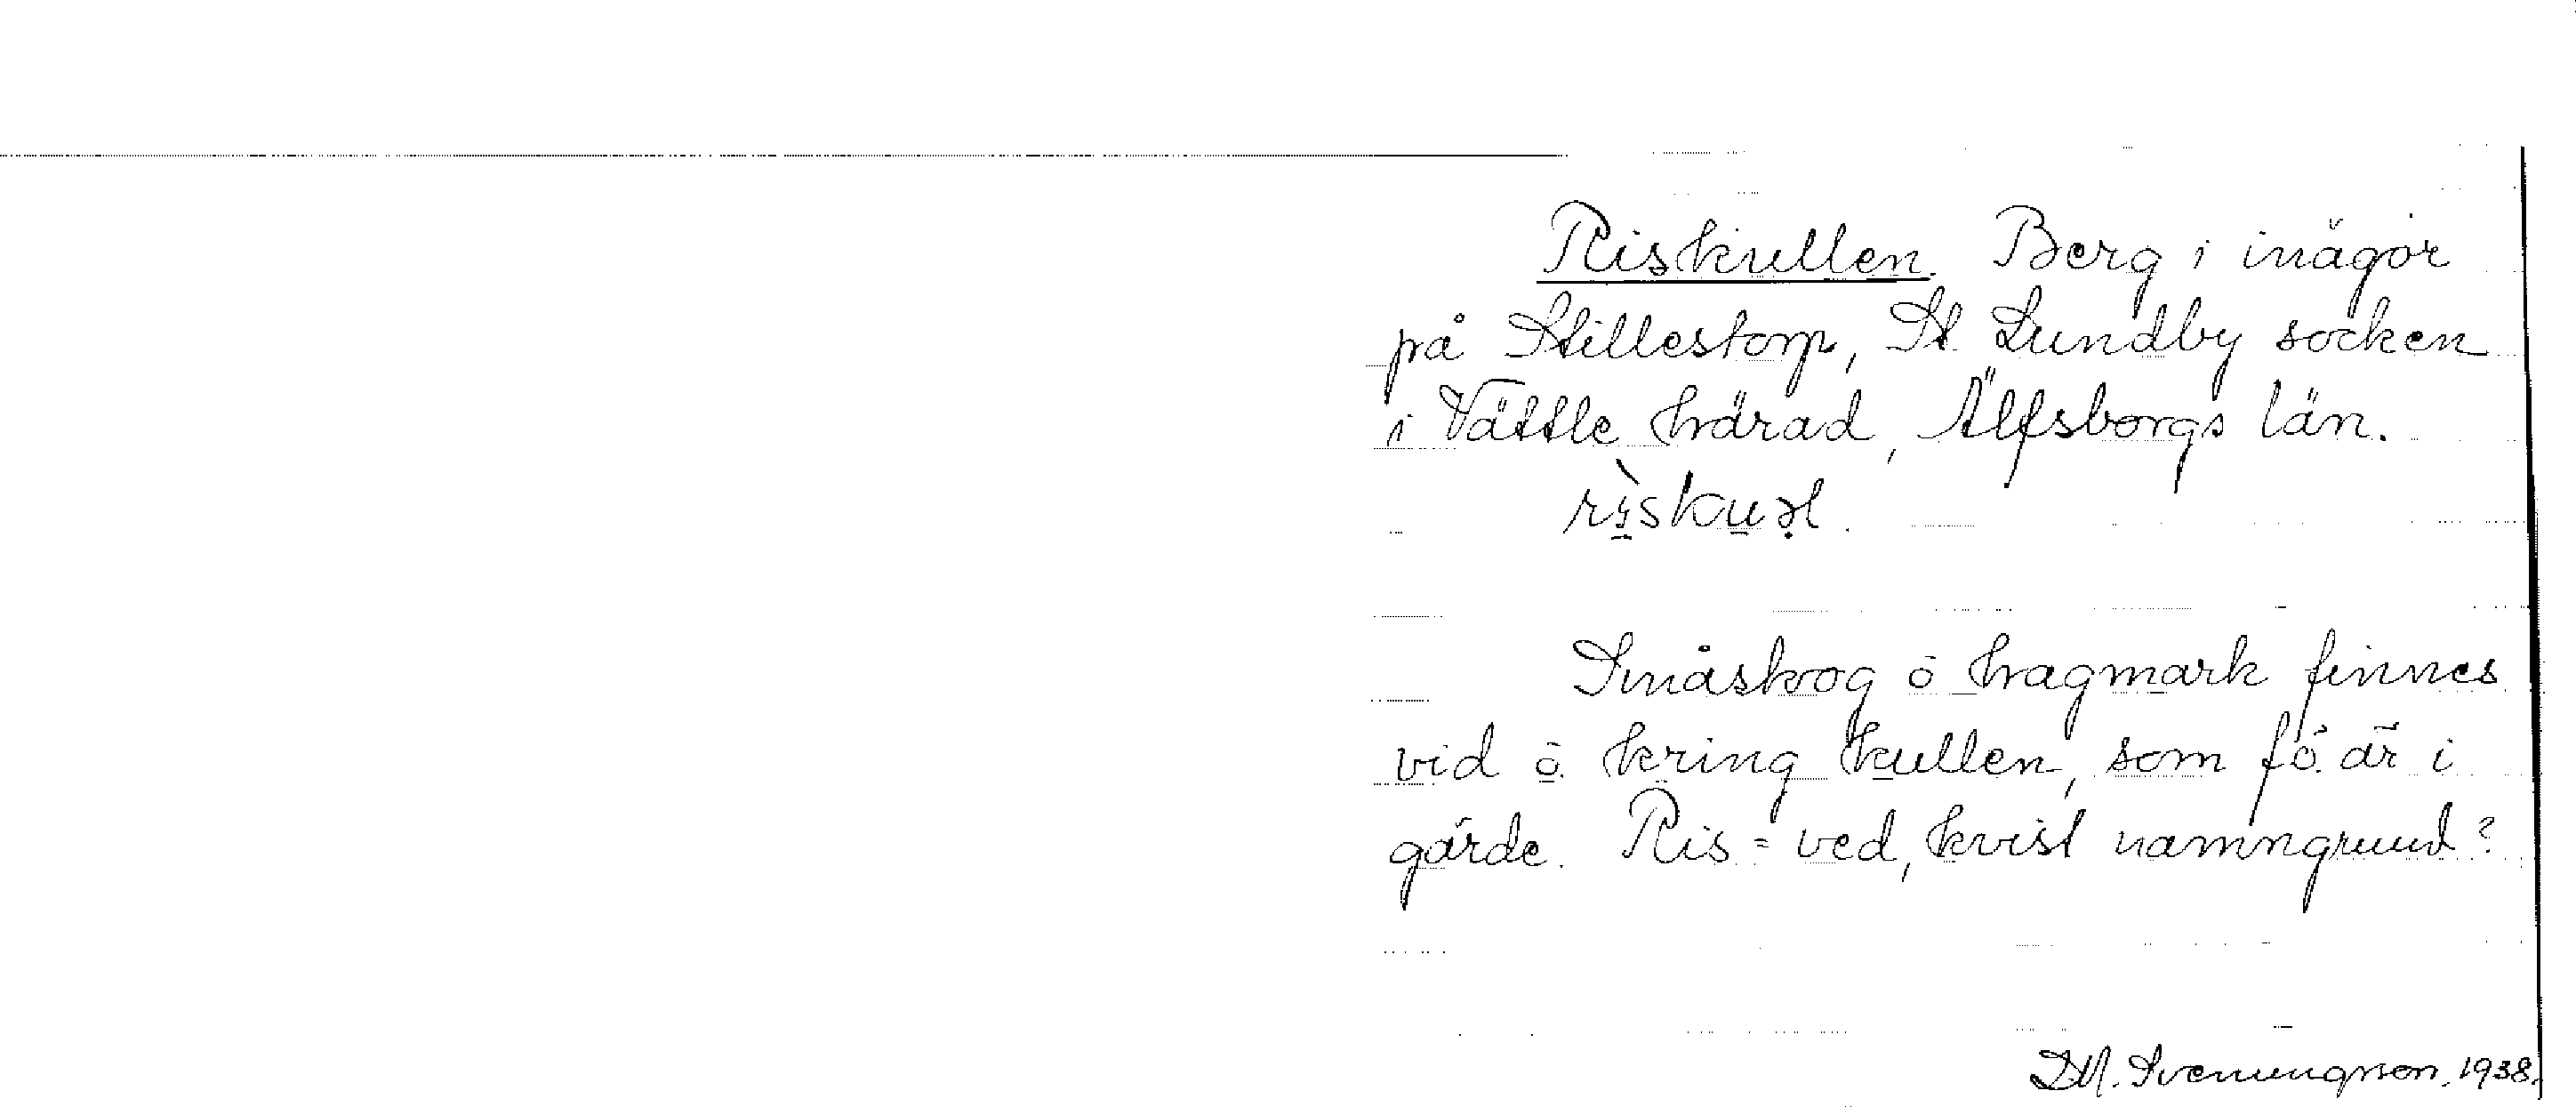 Riskullen. Berg i inägor
på Stillestorp, St. Lundby socken
i Vättle härad, Älfsborgs län.
Småskog ō hagmark finnes
vid ō kring kullen, som fö. är i
gärde. Ris = ved, kvist namngrund?
D.M. Svenungsson, 1938.